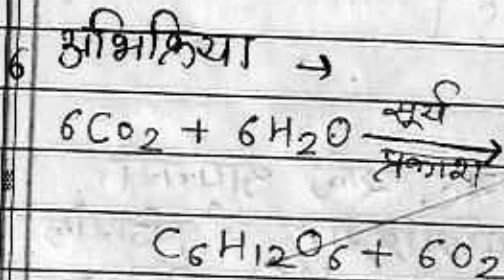 6 अभिक्रिया →
6CO2 + 6H2O सूर्य प्रकाश →
C6H12O6 + 6O2